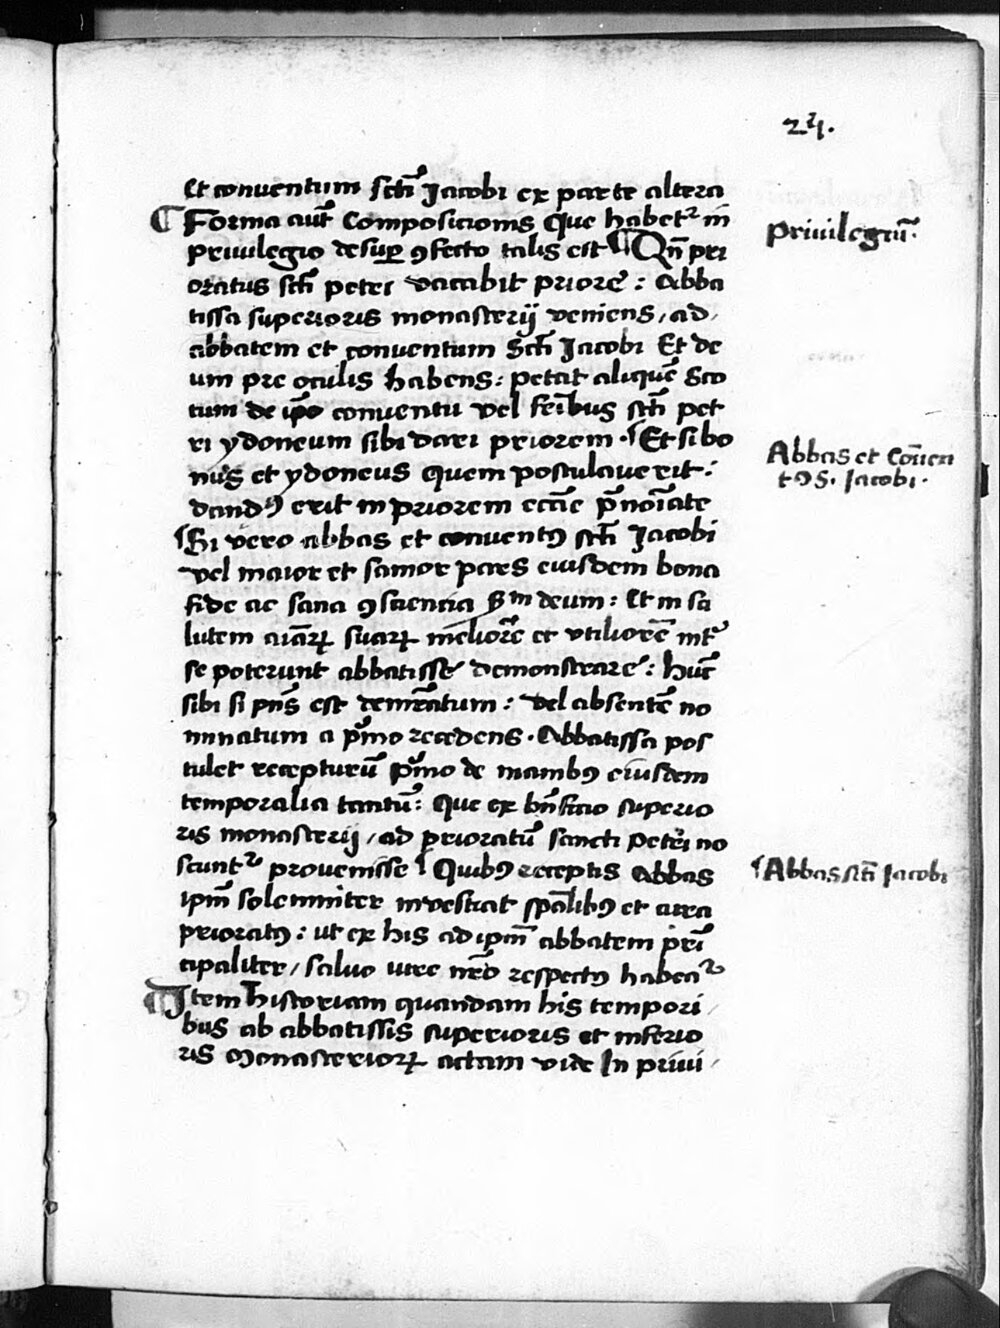 24.
Et conuentum scti Jacobi ex parte altera
¶ Forma aut̄ Composicionis Que habetr in
priuilegiū.
priuilegio desup ꝯfecto talis est ¶ Qn̄ pri
oratus scti petri vacabit priore : Abba
tissa superioris monasterij veniens / ad /
abbatem et conuentum Scti Jacobi Et de
um pre oculis habens : petat aliquē Sco
tum de ip̄o conuentu vel frībus scti pet
ri ydoneum sibi dari priorem · Et si bo
Abbas et Cōuen
tꝯ S. Jacobi ·
nus et ydoneus quem postulauerit :
dandꝯ erit in priorem eccīe p̄noīate
Si vero abbas et conuentꝯ scti Jacobi
vel maior et sanior pars eiusdem bona
fide ac sana ꝯsciencia sm deum : Et in sa
lutem aīarꝝ suarꝝ meliorē et vtiliorē int̄
se poterunt abbatisse demonstrare : hūc
sibi si pn̄s est demr̄atum : vel absentē no
minatum a p̄mo recedens · Abbatissa pos
tulet recepturū p̄mo de manibꝯ eiusdem
temporalia tantū : Que ex bn̄ficio superio
ris monasterij / ad prioratū sancti Petri no
scuntr prouenisse Quibꝯ receptis Abbas
Abbas scti Jacobi
ipm̄ solemniter inuestiat sp̄alibꝯ et cura
prioratꝯ : ut ex his ad ipm̄ abbatem prī
cipaliter / saluo iure nr̄o respectꝯ habear
¶ Item historiam quandam his tempori /
bus ab abbatissis superioris et inferio
ris Monasteriorꝝ actam vide In priui /